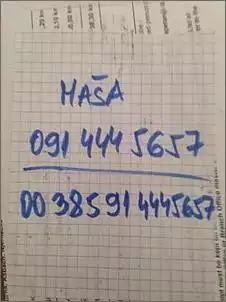 MAŠA
091 444 5657
00 385 91 4445657